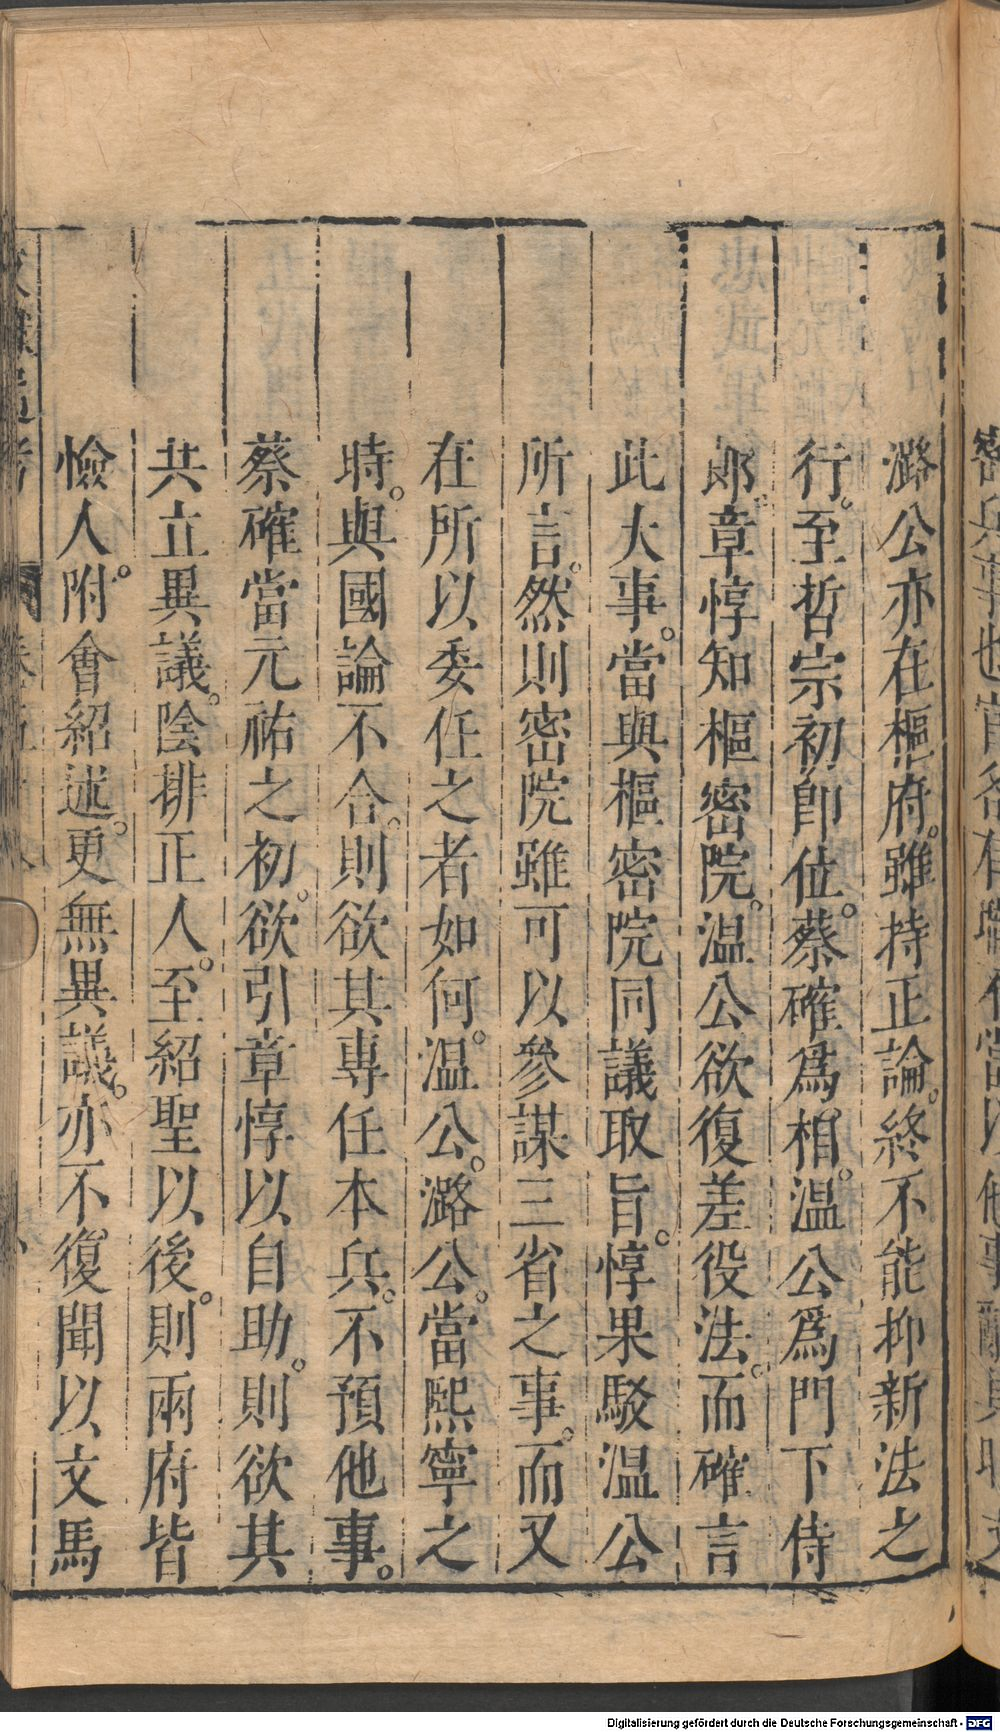 潞公亦在樞府。雖持正論。終不能抑新法之
行。至哲宗初卽位。蔡確爲相。温公爲門下侍
郎。章惇知樞密院。温公欲復差役法。而確言
此大事。當與樞密院同議取旨。惇果駁温公
所言。然則密院雖可以參謀三省之事。而又
在所以委任之者如何。温公。潞公。當熙寧之
時。與國論不合。則欲其専任本兵。不預他事。
蔡確當元祐之初。欲引章惇以自助。則欲其
共立異議。陰排正人。至紹聖以後。則兩府皆
憸人附。會紹述。更無異議。亦不復聞以文馬
Digitalisierung gefördert durch die Deutsche Forschungsgemeinschaft - DFG